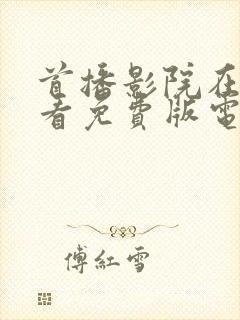 首播影院在
看免費版電
傅紅雪